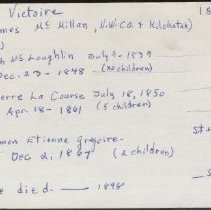 Victoire 18
mes Mc Millan, N.W.CO. & Kilakotah)
)
h Mc Loughlin July 9 - 1839
Dec. 23 - 1848 (no children)
erre La Course July 18, 1850
Apr. 18 - 1861 (5 children)
mon Etienne Gregoire
Dec 2, 1867 (2 children)
e died — 1898